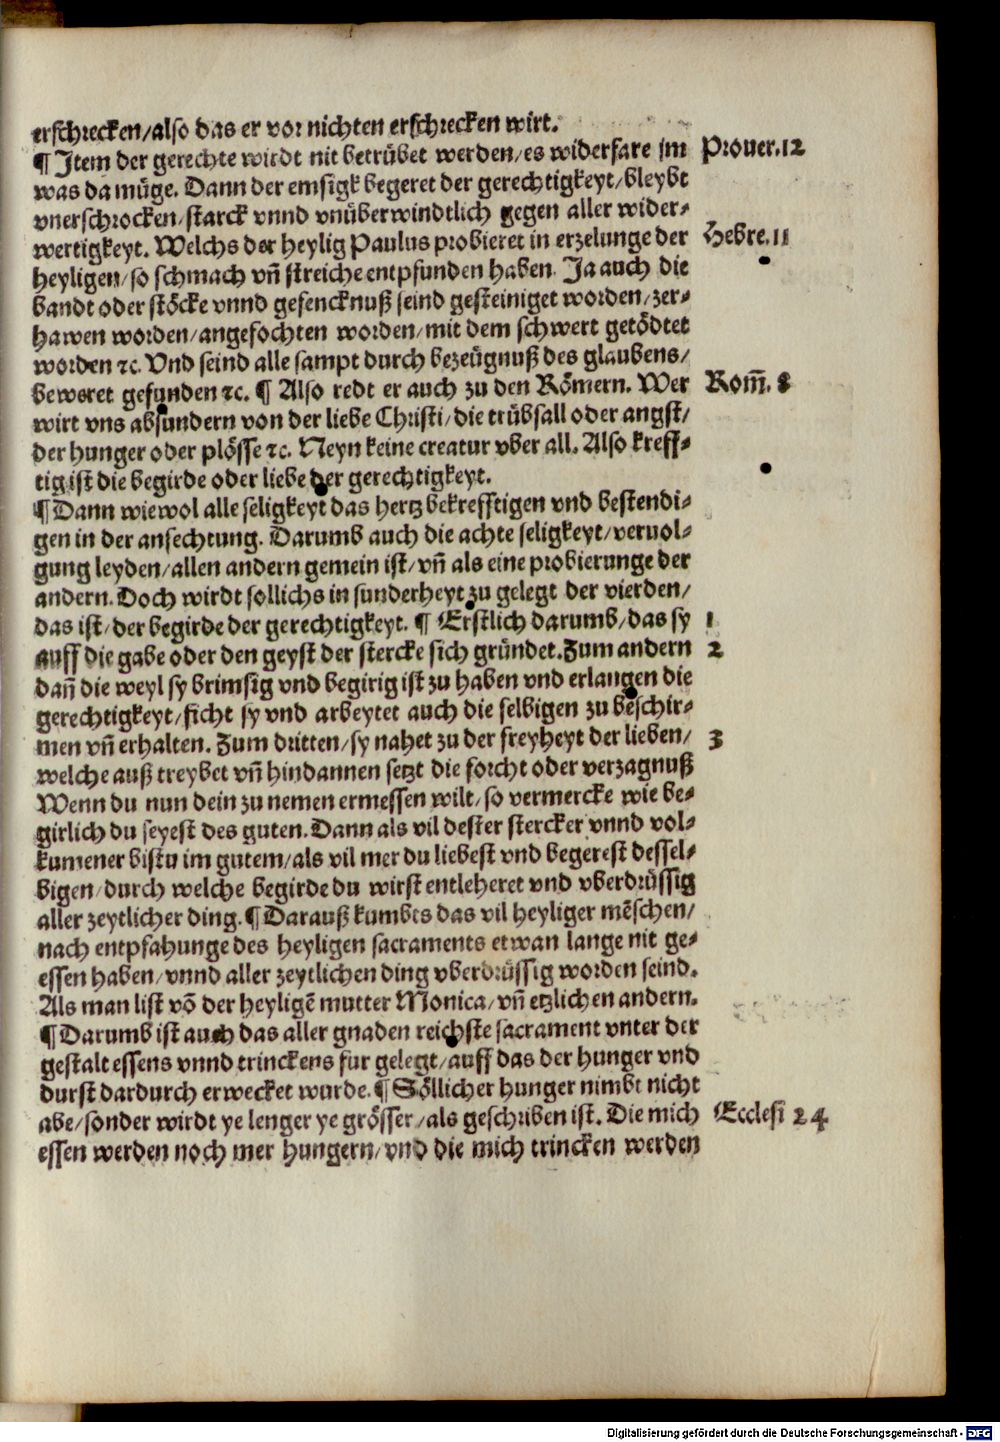 erschrecken/also das er vor nichten erschrecken wirt.
¶ Item der gerechte wirdt nit betrübet werden/es widerfare jm Prouer.12
was da müge. Dann der emsigk begeret der gerechtigkeyt/bleybt
vnerschrocken/starck vnnd vnüberwindtlich gegen aller wider-
wertigkeyt. Welchs der heylig Paulus probieret in erzelunge der Hebre.11
heyligen/so schmach vñ streiche entpfunden haben. Ja auch die
bandt oder stöcke vnnd gefencknuß seind gesteiniget worden/zer-
hawen worden/angefochten worden/mit dem schwert getödtet
worden ⁊c. Vnd seind alle sampt durch bezeügnuß des glaubens/
beweret gefunden ⁊c. ¶ Also redt er auch zu den Römern. Wer Rom̄. 8
wirt vns absundern von der liebe Christi/die trübsall oder angst/
der hunger oder plösse ⁊c. Neyn keine creatur vber all. Also kreff-
tig ist die begirde oder liebe der gerechtigkeyt.
¶ Dann wiewol alle seligkeyt das hertz bekrefftigen vnd bestendi-
gen in der anfechtung. Darumb auch die achte seligkeyt/veruol-
gung leyden/allen andern gemein ist/vñ als eine probierunge der
andern. Doch wirdt sollichs in sunderheyt zu gelegt der vierden/
das ist/der begirde der gerechtigkeyt. ¶ Erstlich darumb/das sy 1
auff die gabe oder den geyst der stercke sich gründet. Zum andern 2
dañ die weyl sy brimsig vnd begirig ist zu haben vnd erlangen die
gerechtigkeyt/ficht sy vnd arbeytet auch die selbigen zu beschir-
men vñ erhalten. Zum dritten/sy nahet zu der freyheyt der lieben/ 3
welche auß treybet vñ hindannen setzt die forcht oder verzagnuß
Wenn du nun dein zu nemen ermessen wilt/so vermercke wie be-
girlich du seyest des guten. Dann als vil dester stercker vnnd vol-
kumener bistu im gutem/als vil mer du liebest vnd begerest dessel-
bigen/durch welche begirde du wirst entleheret vnd vberdrüssig
aller zeytlicher ding. ¶ Darauß kumbts das vil heyliger mēschen/
nach entpfahunge des heyligen sacraments etwan lange nit ge-
essen haben/vnnd aller zeytlichen ding vberdrüssig worden seind.
Als man list vō der heyligē mutter Monica/vñ etzlichen andern.
¶ Darumb ist auch das aller gnaden reichste sacrament vnter der
gestalt essens vnnd trinckens fur gelegt/auff das der hunger vnd
durst dardurch erwecket wurde. ¶ Söllicher hunger nimbt nicht
abe/sonder wirdt ye lenger ye grösser/als geschriben ist. Die mich Ecclesi 24
essen werden noch mer hungern/vnd die mich trincken werden
Digitalisierung gefördert durch die Deutsche Forschungsgemeinschaft - DFG